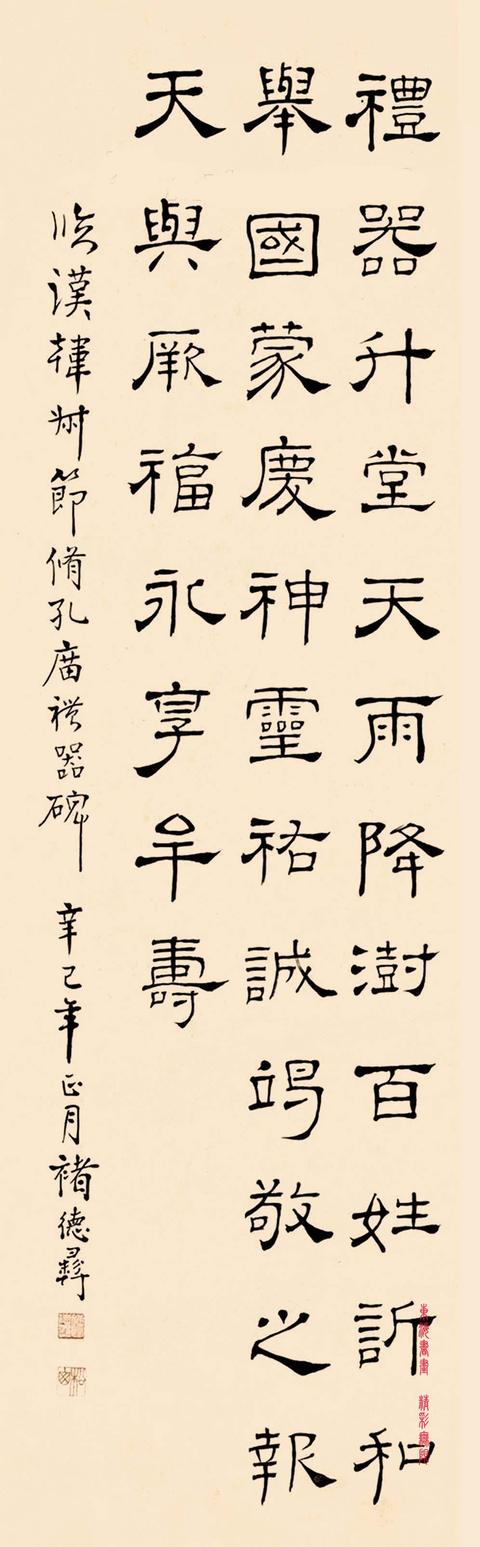 禮器升堂天雨降澍百姓訢和
舉國蒙慶神靈祐誠竭敬之報
天與厥福永享牟壽
臨漢韓叔節脩孔廟禮器碑 辛巳年正月褚德彝